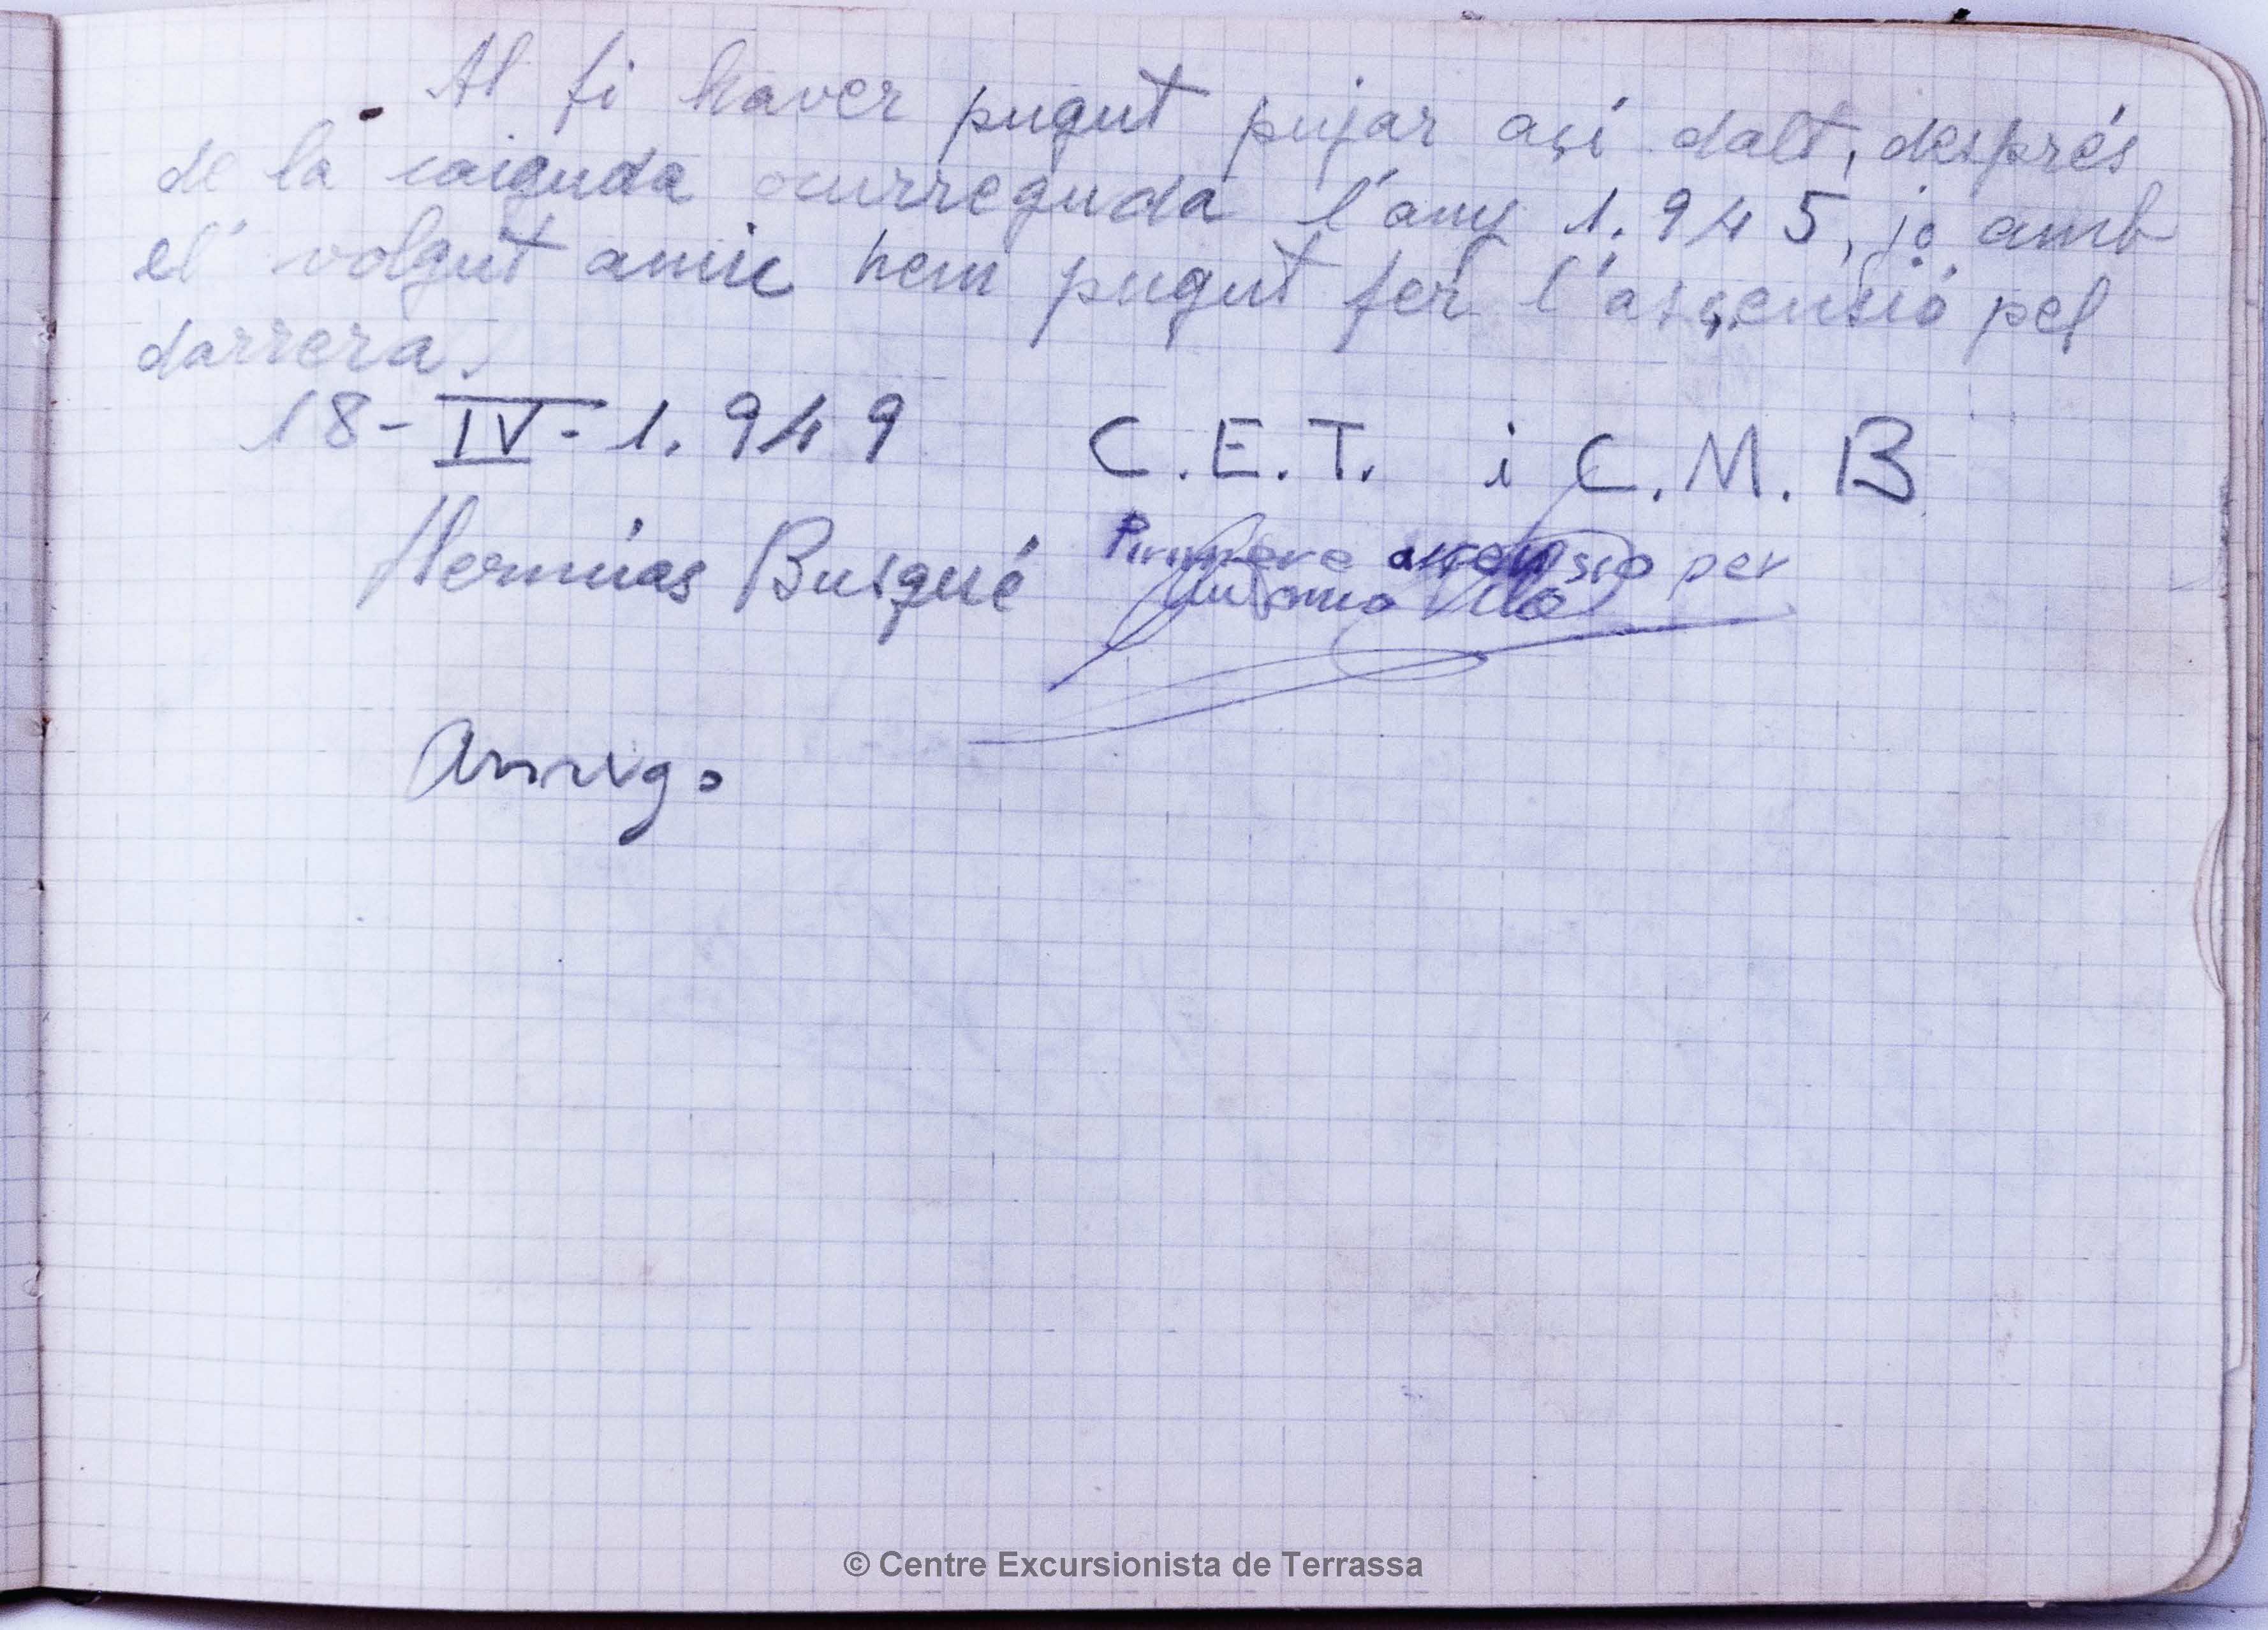 Al fi haver pugut pujar açí dalt, després
de la caiguda ocurreguda l'any 1.945, jo amb
el volgut amic hem pugut fer l'asçensió pel
darrera.
18-IV-1.949 C.E.T. i C.M.B
Herminias Busqué
Primera ascensio per
Antonio Vila
Amigo
© Centre Excursionista de Terrassa